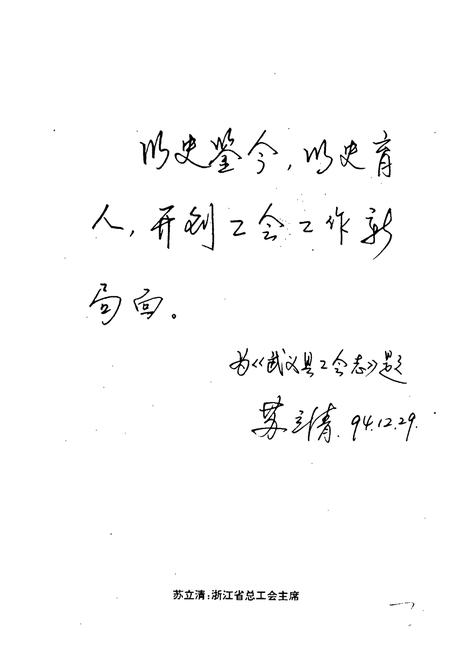 以史鉴今，以史育
人，开创工会工作新
局面。
为《武义县工会志》题
苏立清 94.12.29.
苏立清：浙江省总工会主席